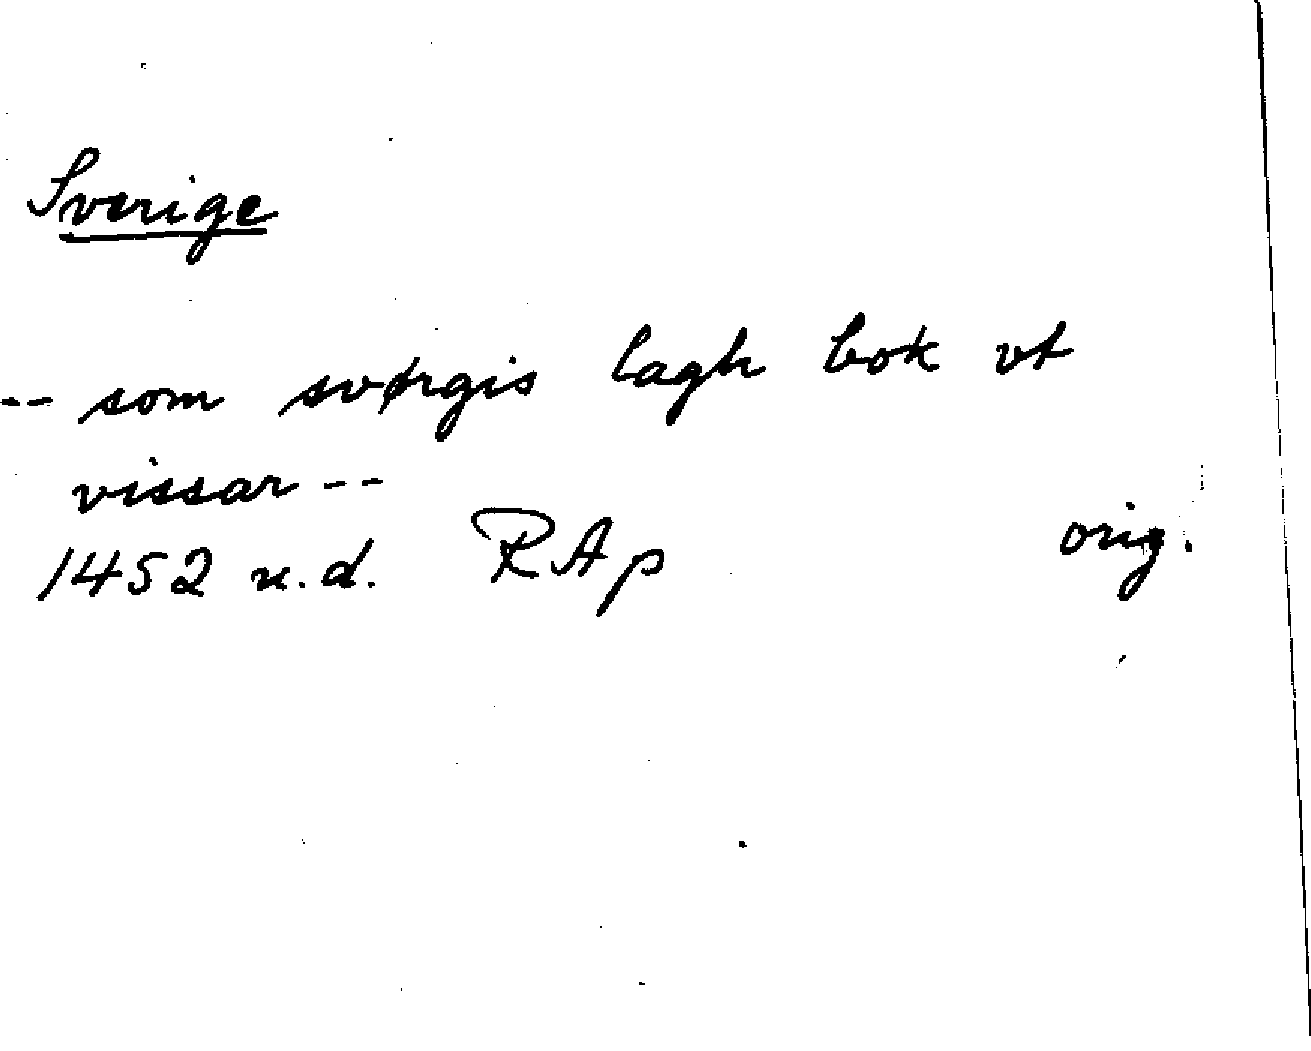 Sverige
-- som svørgis lagh bok vt
vissar --
1452 u.d. RAp orig.